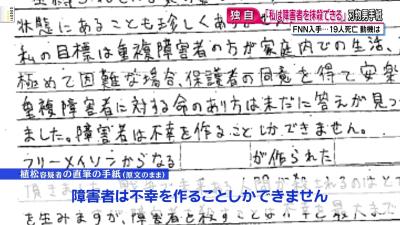 独自 「私は障害者を抹殺できる」刃物男手紙
FNN入手…19人死亡 動機は
状態にあることも珍しくあり
私の目標は重複障害者の方が家庭内での生活、
極めて困難な場合、保護者の同意を得て安楽
重複障害者に対する命のあり方は未だに答えが見つ
ました。障害者は不幸を作ることしかできません。
フリーメイソンからなる が作られた
植松容疑者の直筆の手紙(原文のまま)
障害者は不幸を作ることしかできません
を生みますが、障害者を殺すことは不幸を最大まで